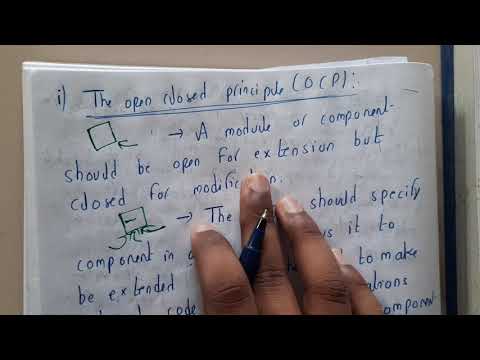 i) The open closed principle (OCP):
→ A module or component
should be open for extension but
closed for modification.
→ The should specify
component in a us it to
be extended to make
code
component